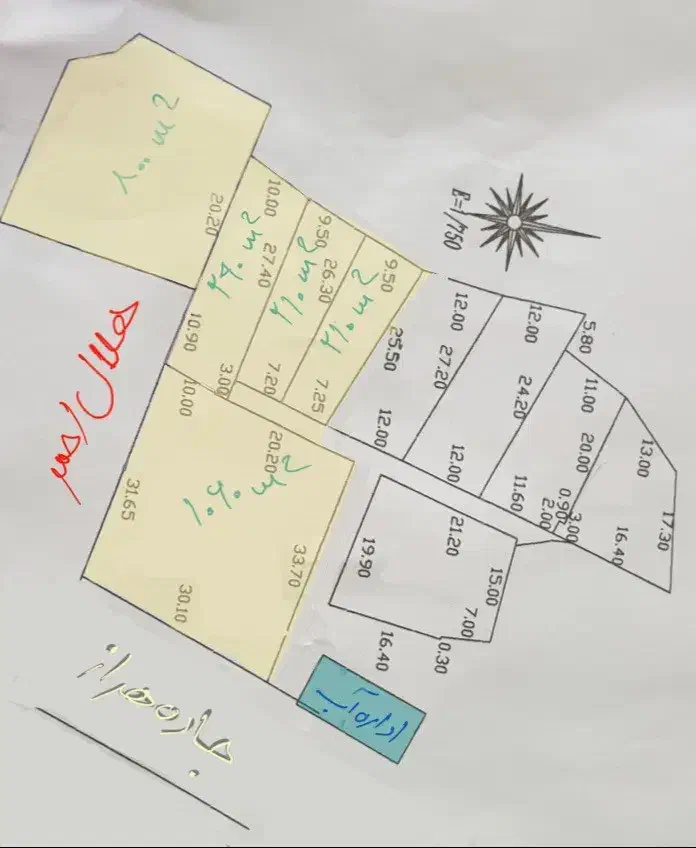 ۸۰۰ m2
20.20
E=1/750
10.00
27.40
۲۹۰ m2
10.90
3.00
9.50
26.30
۲۱۰ m2
7.20
9.50
۲۱۰ m2
7.25
25.50
12.00
27.20
12.00
12.00
24.20
12.00
5.80
11.00
20.00
11.60
13.00
17.30
16.40
0.90
3.00
2.00
10.00
20.20
۱۰۹۰ m2
31.65
33.70
30.10
21.20
19.90
15.00
7.00
16.40
0.30
هلال احمر
اداره آب
جاده هراز